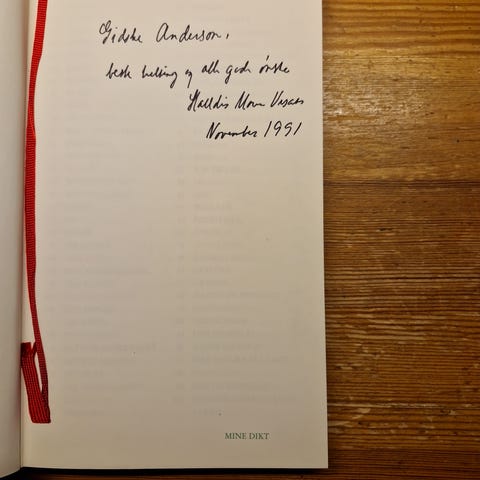 Gidske Anderson,
beste helsing og alle gode ønske
Halldis Moren Vesaas
November 1991
MINE DIKT